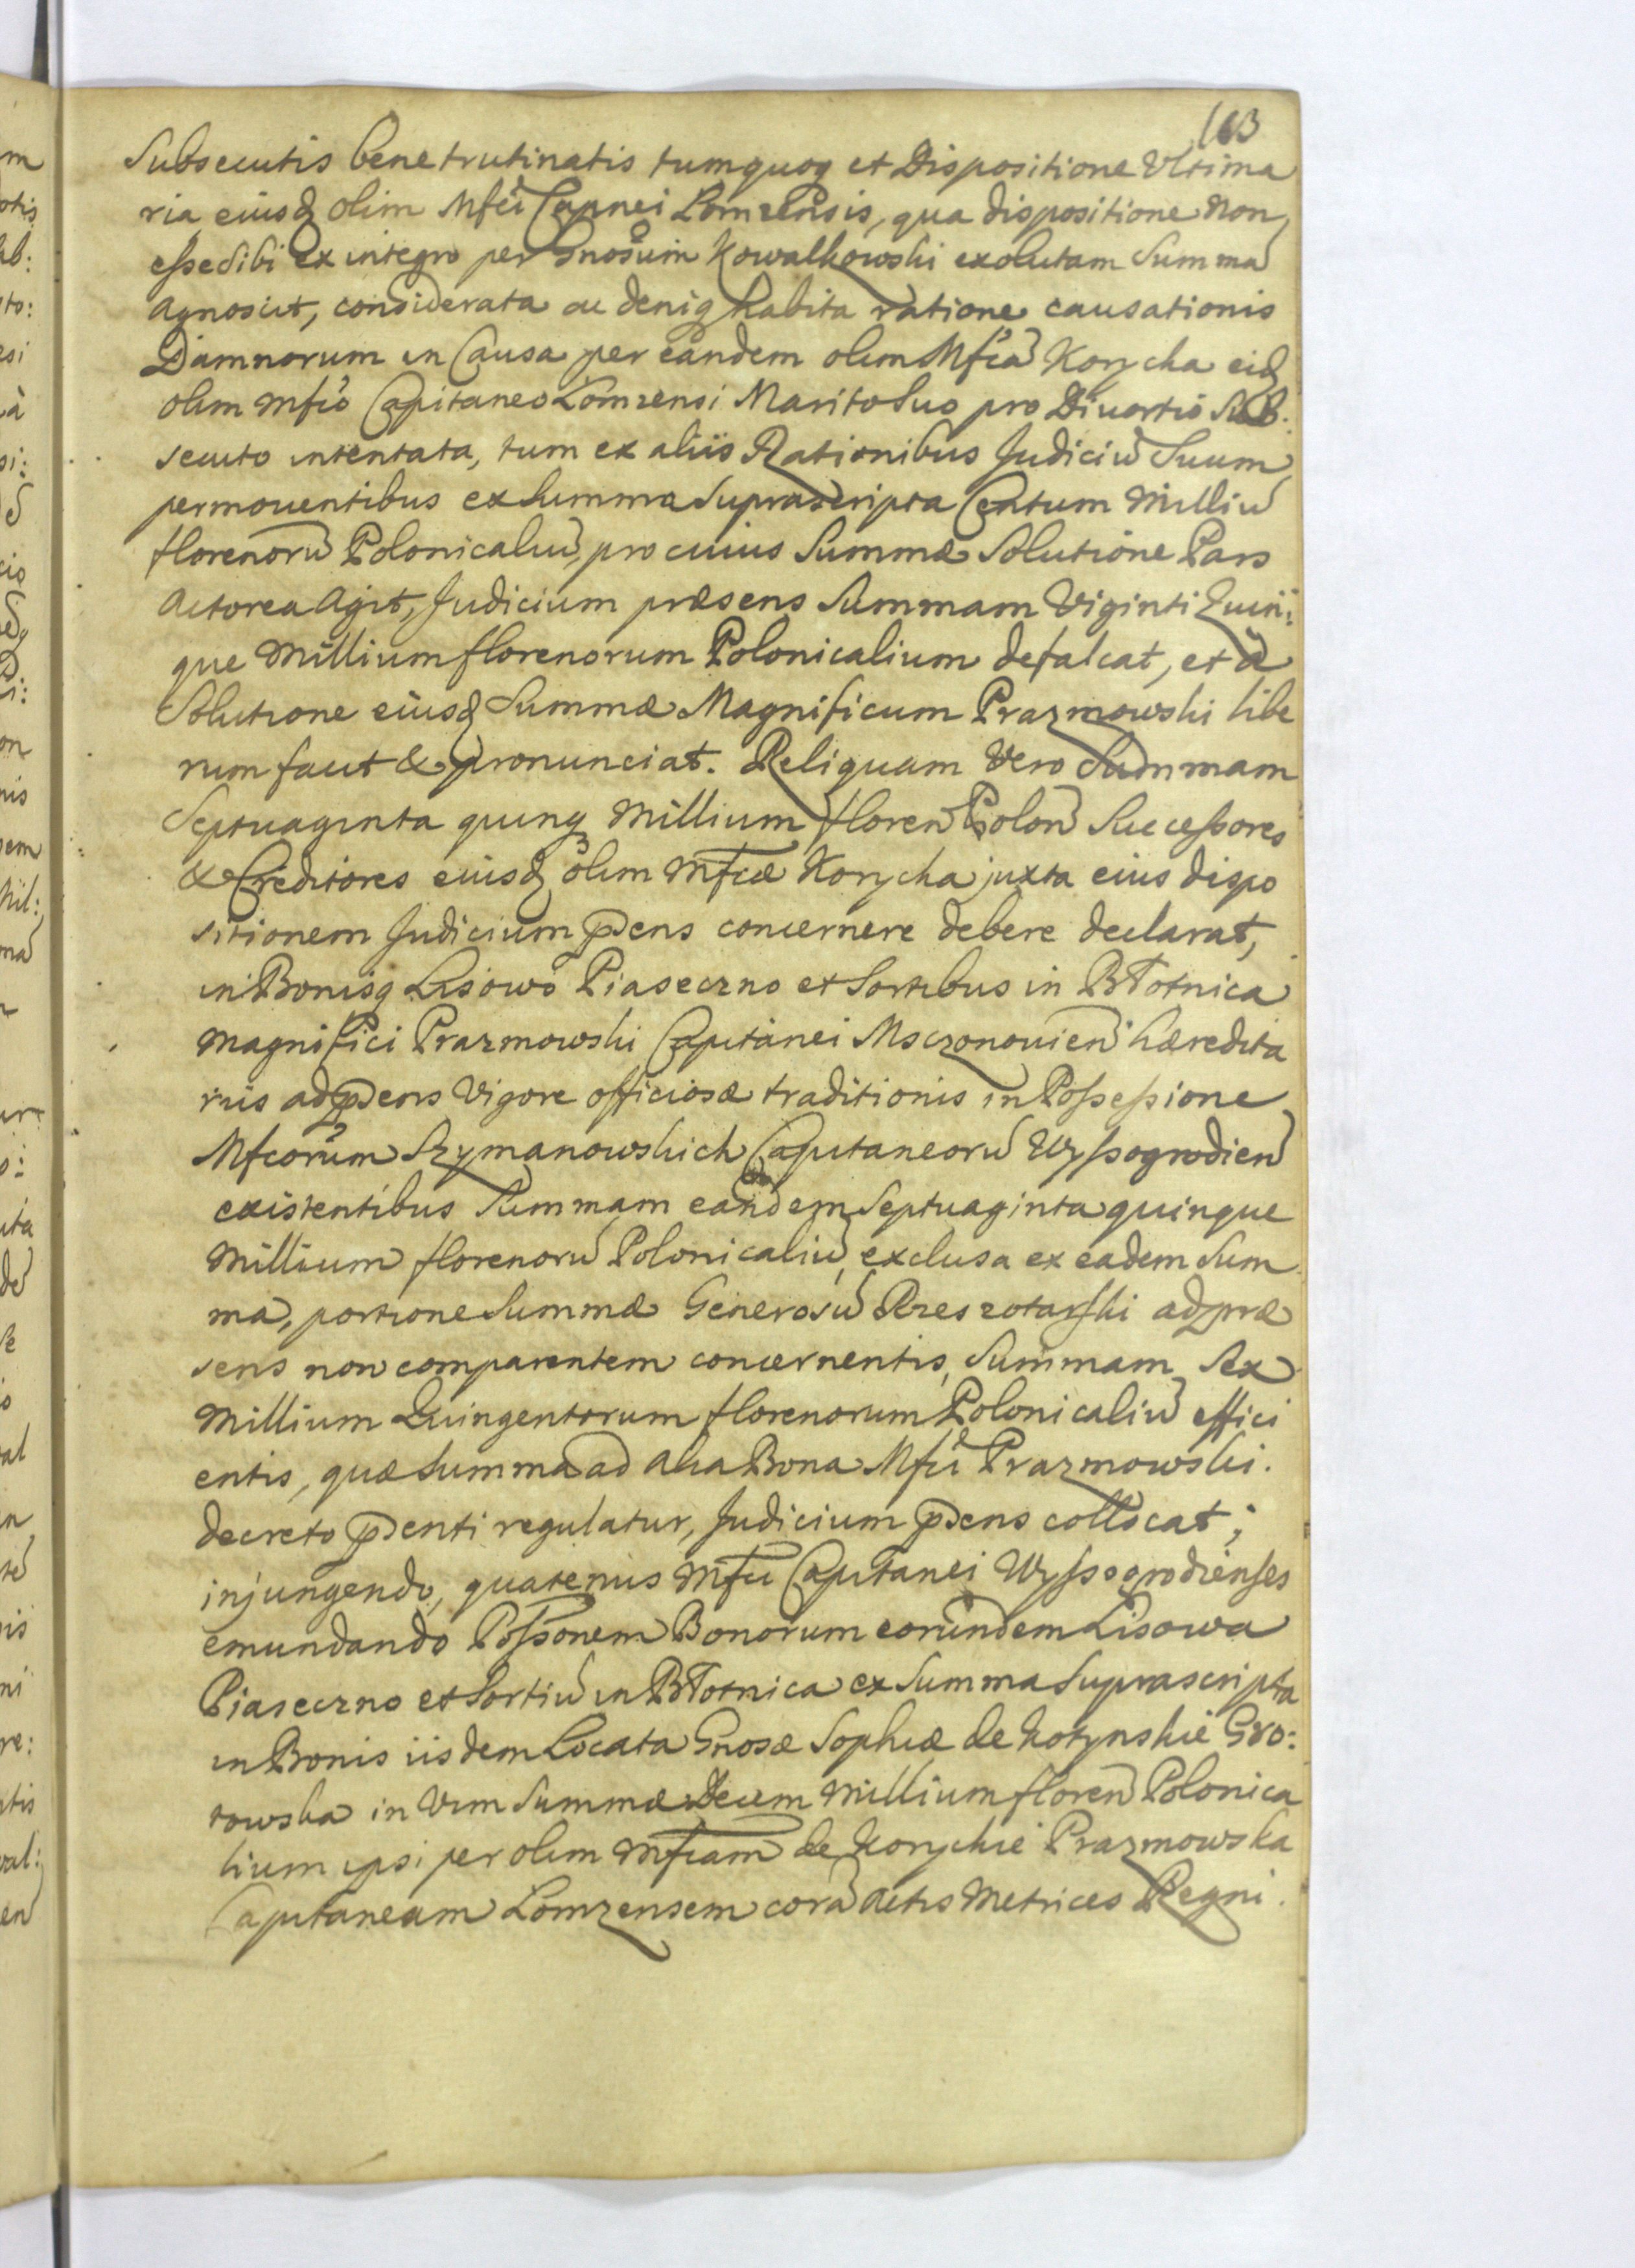 163
Subsecutis bene trutinatis tumquoq et Dispositione Ultima
ria eiusd olim Mfci Capnei Lomzensis, qua dispositione non
esse sibi ex integro per Gnosum Kowalkowski exolutam Summã
agnoscit, considerata ac deniq habita ratione causationis
Damnorum in Causa per eandem olim Mfcã Korycka eid
olim Mfco Capitaneo Lomzensi Marito Suo pro Divortio Sub:
secuto intentata, tum ex aliis Rationibus Judiciũ Suum
permouentibus ex Summa Suprascripta Centum Milliũ
florenorũ Polonicaliũ, pro cuius Summæ Solutione Pars
Actorea Agit, Judicium præsens Summam Viginti Quin:
que Millium florenorum Polonicalium defalcat, et à
Solutione eiusd Summæ Magnificum Prazmowski libe
rum facit & pronunciat. Reliquam Vero Summam
Septuaginta quinq Millium floren Polon Successores
& Creditores eiusd olim Mfcæ Korycka juxta eius dispo
sitionem Judicium pdens concernere debere declarat,
in Bonisq Lisowo Piaseczno et Sortibus in Błotnica
Magnifici Prazmowski Capitanei Msczonouien hæredita
riis ad pdens Vigore officiosæ traditionis in Possessione
Mfcorum Szymanowskich Capitaneorũ Wyssogrodien
existentibus Summam eandem Septuaginta quinque
Millium florenorũ Polonicaliũ, exclusa ex eadem Sum
ma, portione Summæ Generosũ Rzeszotarski ad præ
sens non comparentem concernentis, Summam Sex
Millium Quingentorum florenorum Polonicaliũ effici
entis, quæ Summa ad alia Bona Mfci Prazmowski
decreto pdenti regulatur, Judicium pdens collocat;
injungendo, quatenus Mfci Capitanei Wyssogrodienses
emundando Possonem Bonorum eorundem Lisowa
Piaseczno et Sortiũ in Błotnica ex Summa Suprascripta
in Bonis iisdem Locata Gnosæ Sophiæ de Kotynskie Gro:
towska in Vim Summæ Decem Millium floren Polonica
lium ipsi per olim Mfcam de Koryckie Prazmowska
Capitaneam Lomzensem corã Actis Metrices Regni